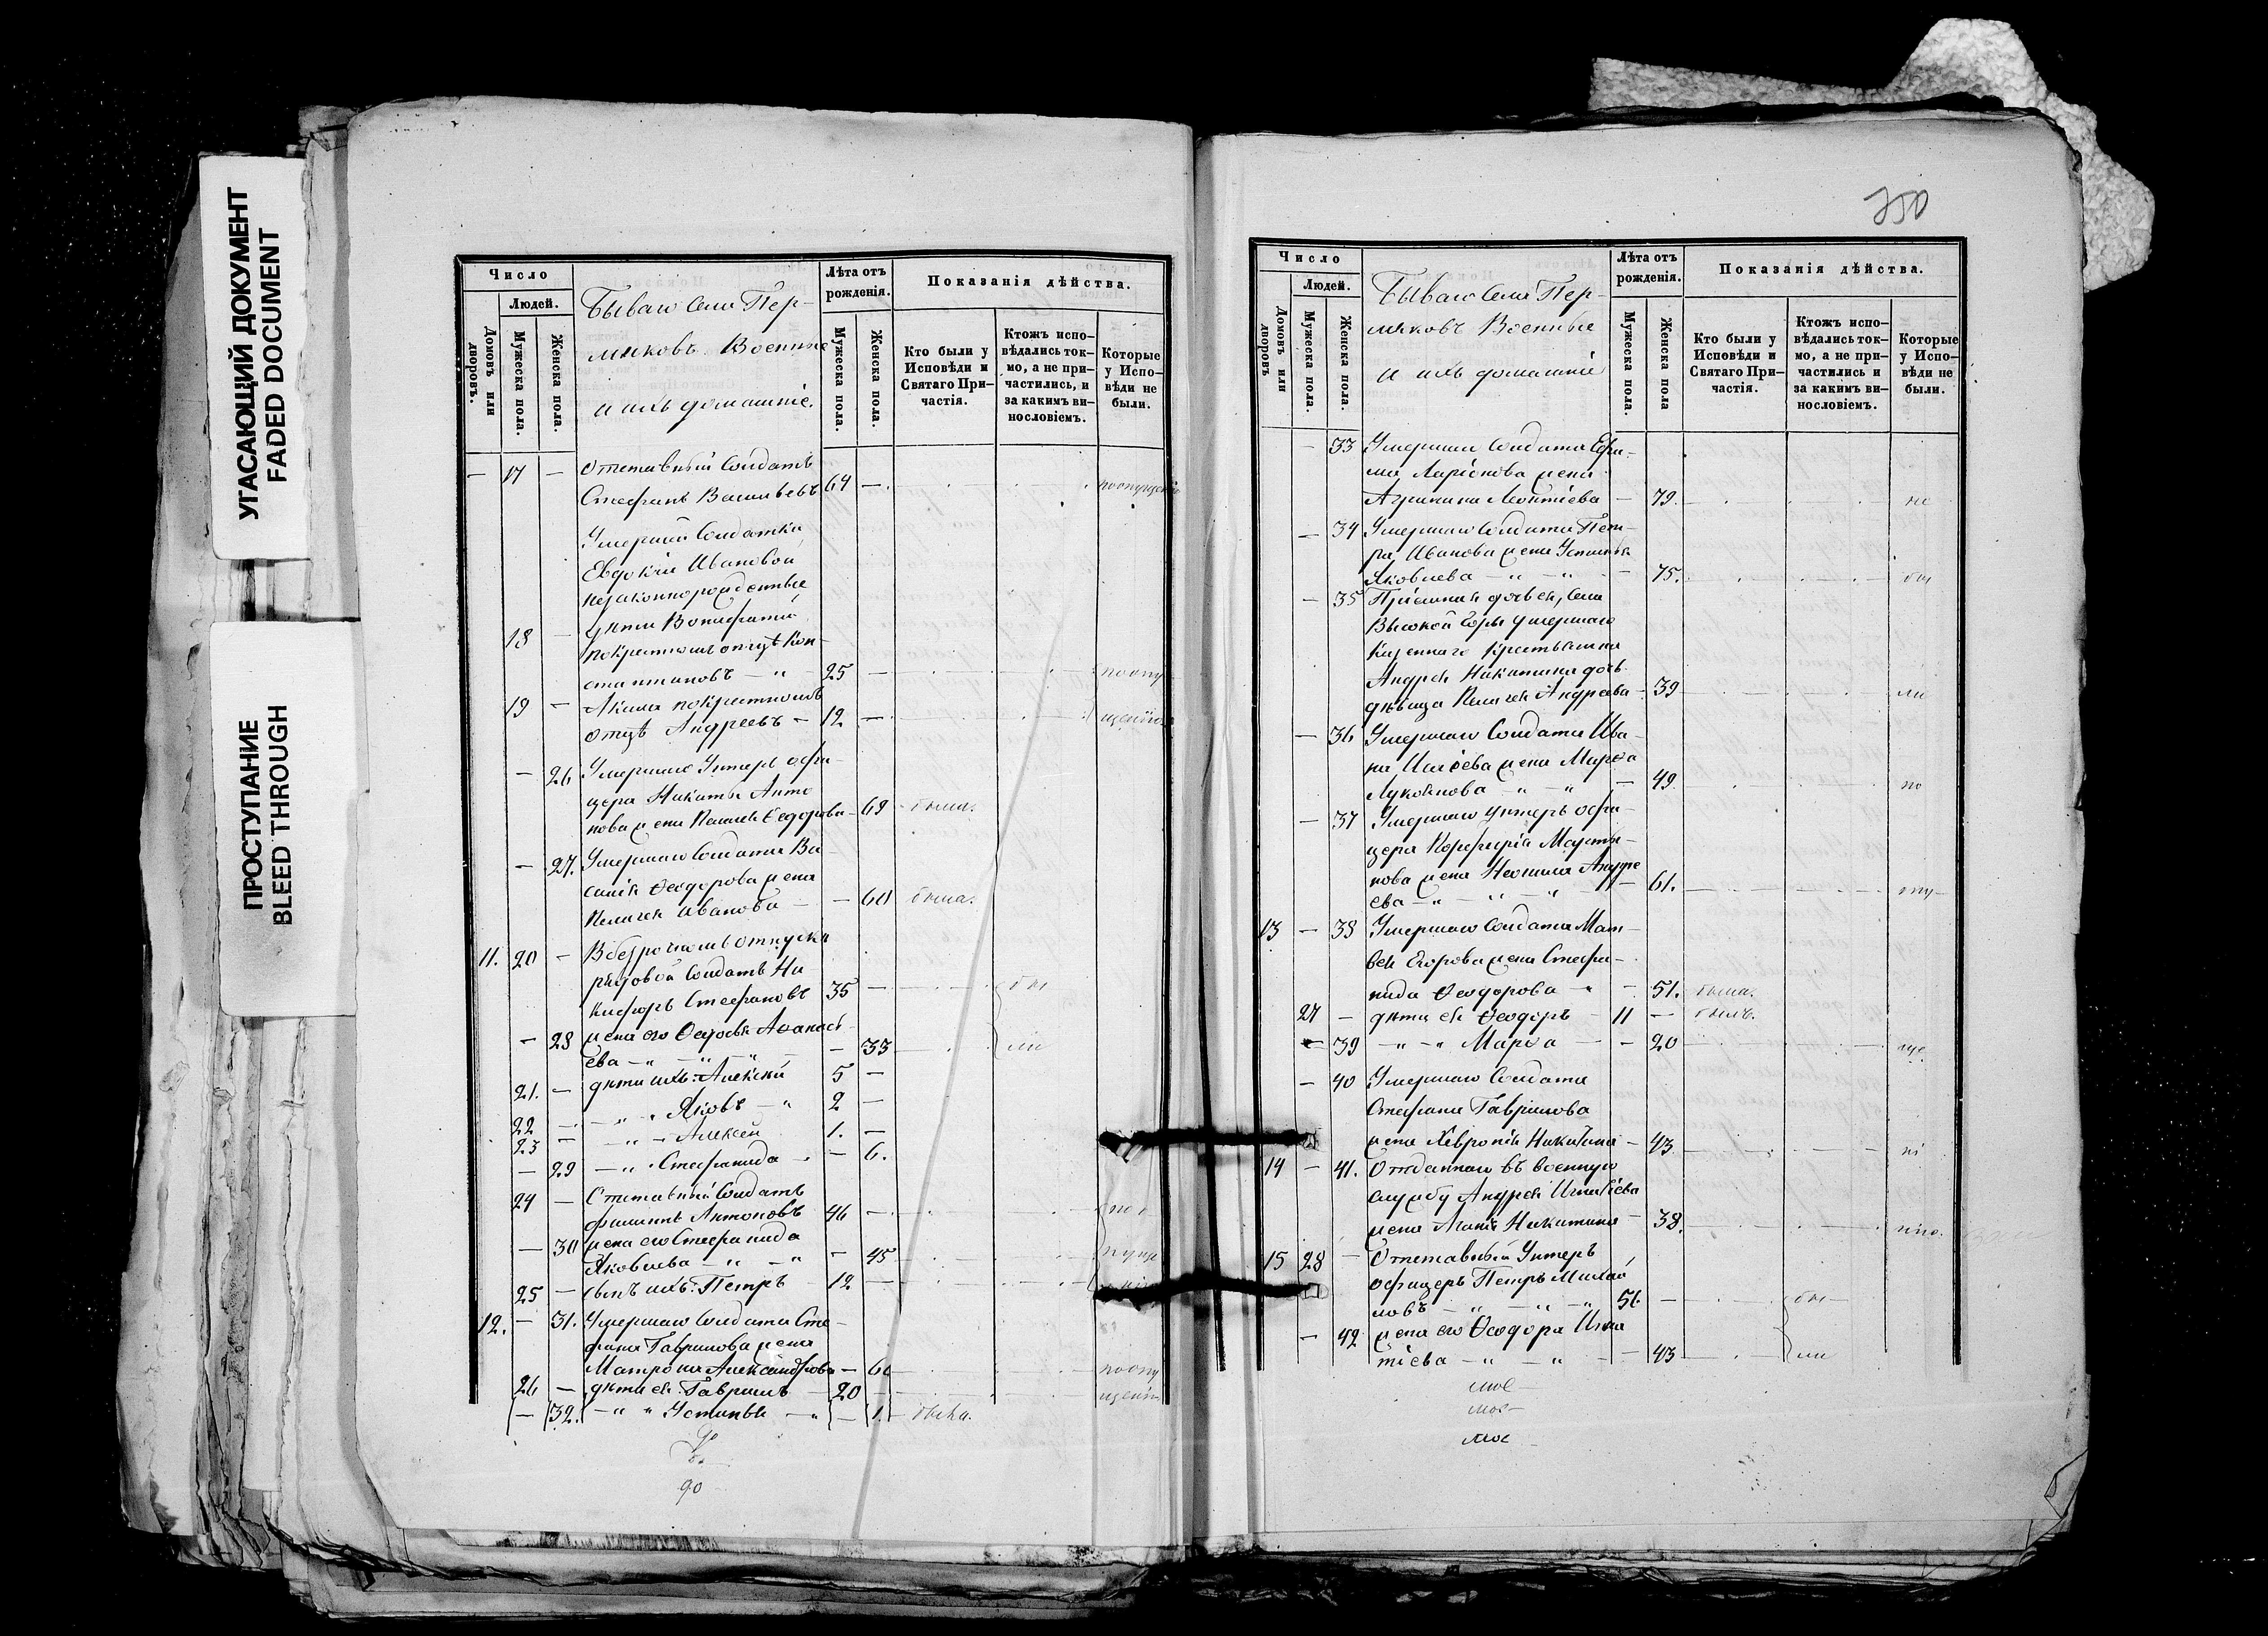 УГАСАЮЩИЙ ДОКУМЕНТ
FADED DOCUMENT
ПРОСТУПАНИЕ
BLEED THROUGH
Число
Людей.
Домовъ или дворовъ.
Мужеска пола.
Женска пола.
Бываю Села Пер-
мяковъ Военные
и ихъ домашніе.
Лѣта отъ рожденія.
Мужеска пола.
Женска пола.
Показанія дѣйства.
Кто были у Исповѣди и Святаго При-частія.
Ктожъ испо-вѣдались ток-мо, а не при-частились, и за какимъ ви-нословіемъ.
Которые у Испо-вѣди не были.
— 17 — Отставный Солдатъ
Стефанъ Васильевъ 64 — по опущенію
Умершей Солдатки
Евдокіи Ивановой
незаконнорожденные
18 — дѣти Вонифатій
по крестномъ отцѣ Кон-
стантиновъ — " 25 — по опу
19 — Акимъ по крестномъ
отцѣ Андреевъ — 12 — щенію
— 26 Умершаго Унтеръ офи-
цера Никиты Анто
нова жена Пелагея Ѳеодорова — 69 была.
— 27. Умершаго Солдата Ва
силія Ѳеодорова жена
Пелагея Иванова — — 60 была.
11. 20 — В безрочномъ отпуску
рядовой Солдатъ Ни
кифоръ Стефановъ 35 — бы
— 28 жена его Ѳедосья Аѳанась
ева — " — " — " — 33 ли
21. — дѣти ихъ: Алексѣй 5 —
22 — " Яковъ — " 2 —
23 — " — Алексѣй 1. —
— 29 — " Стефанида — 6.
24 — Отставный Солдатъ
Филиппъ Антоновъ 46 — по о
— 30 жена его Стефанида
Яковлева — " — " — 45 пуще
25 — сынъ ихъ: Петръ 12 —
12. — 31. Умершаго Солдата Сте
фана Гаврилова жена
Матрона Александрова — 60 по опу
26 — дѣти ея: Гавріилъ — 20 — щенію
— 32. — " " Устинья — " — 1. была.
90
350
Число
Людей.
Домовъ или дворовъ
Мужеска пола.
Женска пола.
Бываю Села Пер-
мяковъ Военные
и ихъ домашніе
Лѣта отъ рожденія.
Мужеска пола.
Женска пола
Показанія дѣйства.
Кто были у Исповѣди и Святаго При-частія.
Ктожъ испо-вѣдались ток-мо, а не при-частились и за какимъ ви-нословіемъ.
Которые у Испо-вѣди не были.
— 33 Умершаго Солдата Ефи-
ма Ларіонова жена
Агрипина Леонтіева — 79. не
— 34 Умершаго Солдата Пет-
ра Иванова жена Устинья
Яковлева — " — " — 75. бы
— 35 Пріемная дочь ея, села
Высокой Горы умершаго
Казеннаго крестьянина
Андрея Никитина дочь
дѣвица Пелагея Андреева — 39 ли
— 36 Умершаго Солдата Ива-
на Иліева жена Марѳа
Лукоянова — " — " — 49 по
— 37 Умершаго унтеръ офи-
цера Порфирія Марты-
нова жена Неонила Андре
ева — " — " — " 61. опу-
13 — 38 Умершаго Солдата Мат-
вея Егорова жена Стефа-
нида Ѳеодорова " — 51. была.
27 — дѣти ея Ѳеодоръ — 11 — былъ.
— 39 — " — " Марѳа — — 20 ще
— 40 Умершаго Солдата
Стефана Гаврилова
жена Хевронія Никитина — 43 ні
14 — 41. Отданнаго въ военную
службу Андрея Игнатіева
жена Агапія Никитина — 38.
15 28 — Отставный Унтеръ
офицеръ Петръ Михай
ловъ — " — " — " 51 — бы
— 42 жена его Ѳеодора Игна
тіева — " — " — — 43 ли